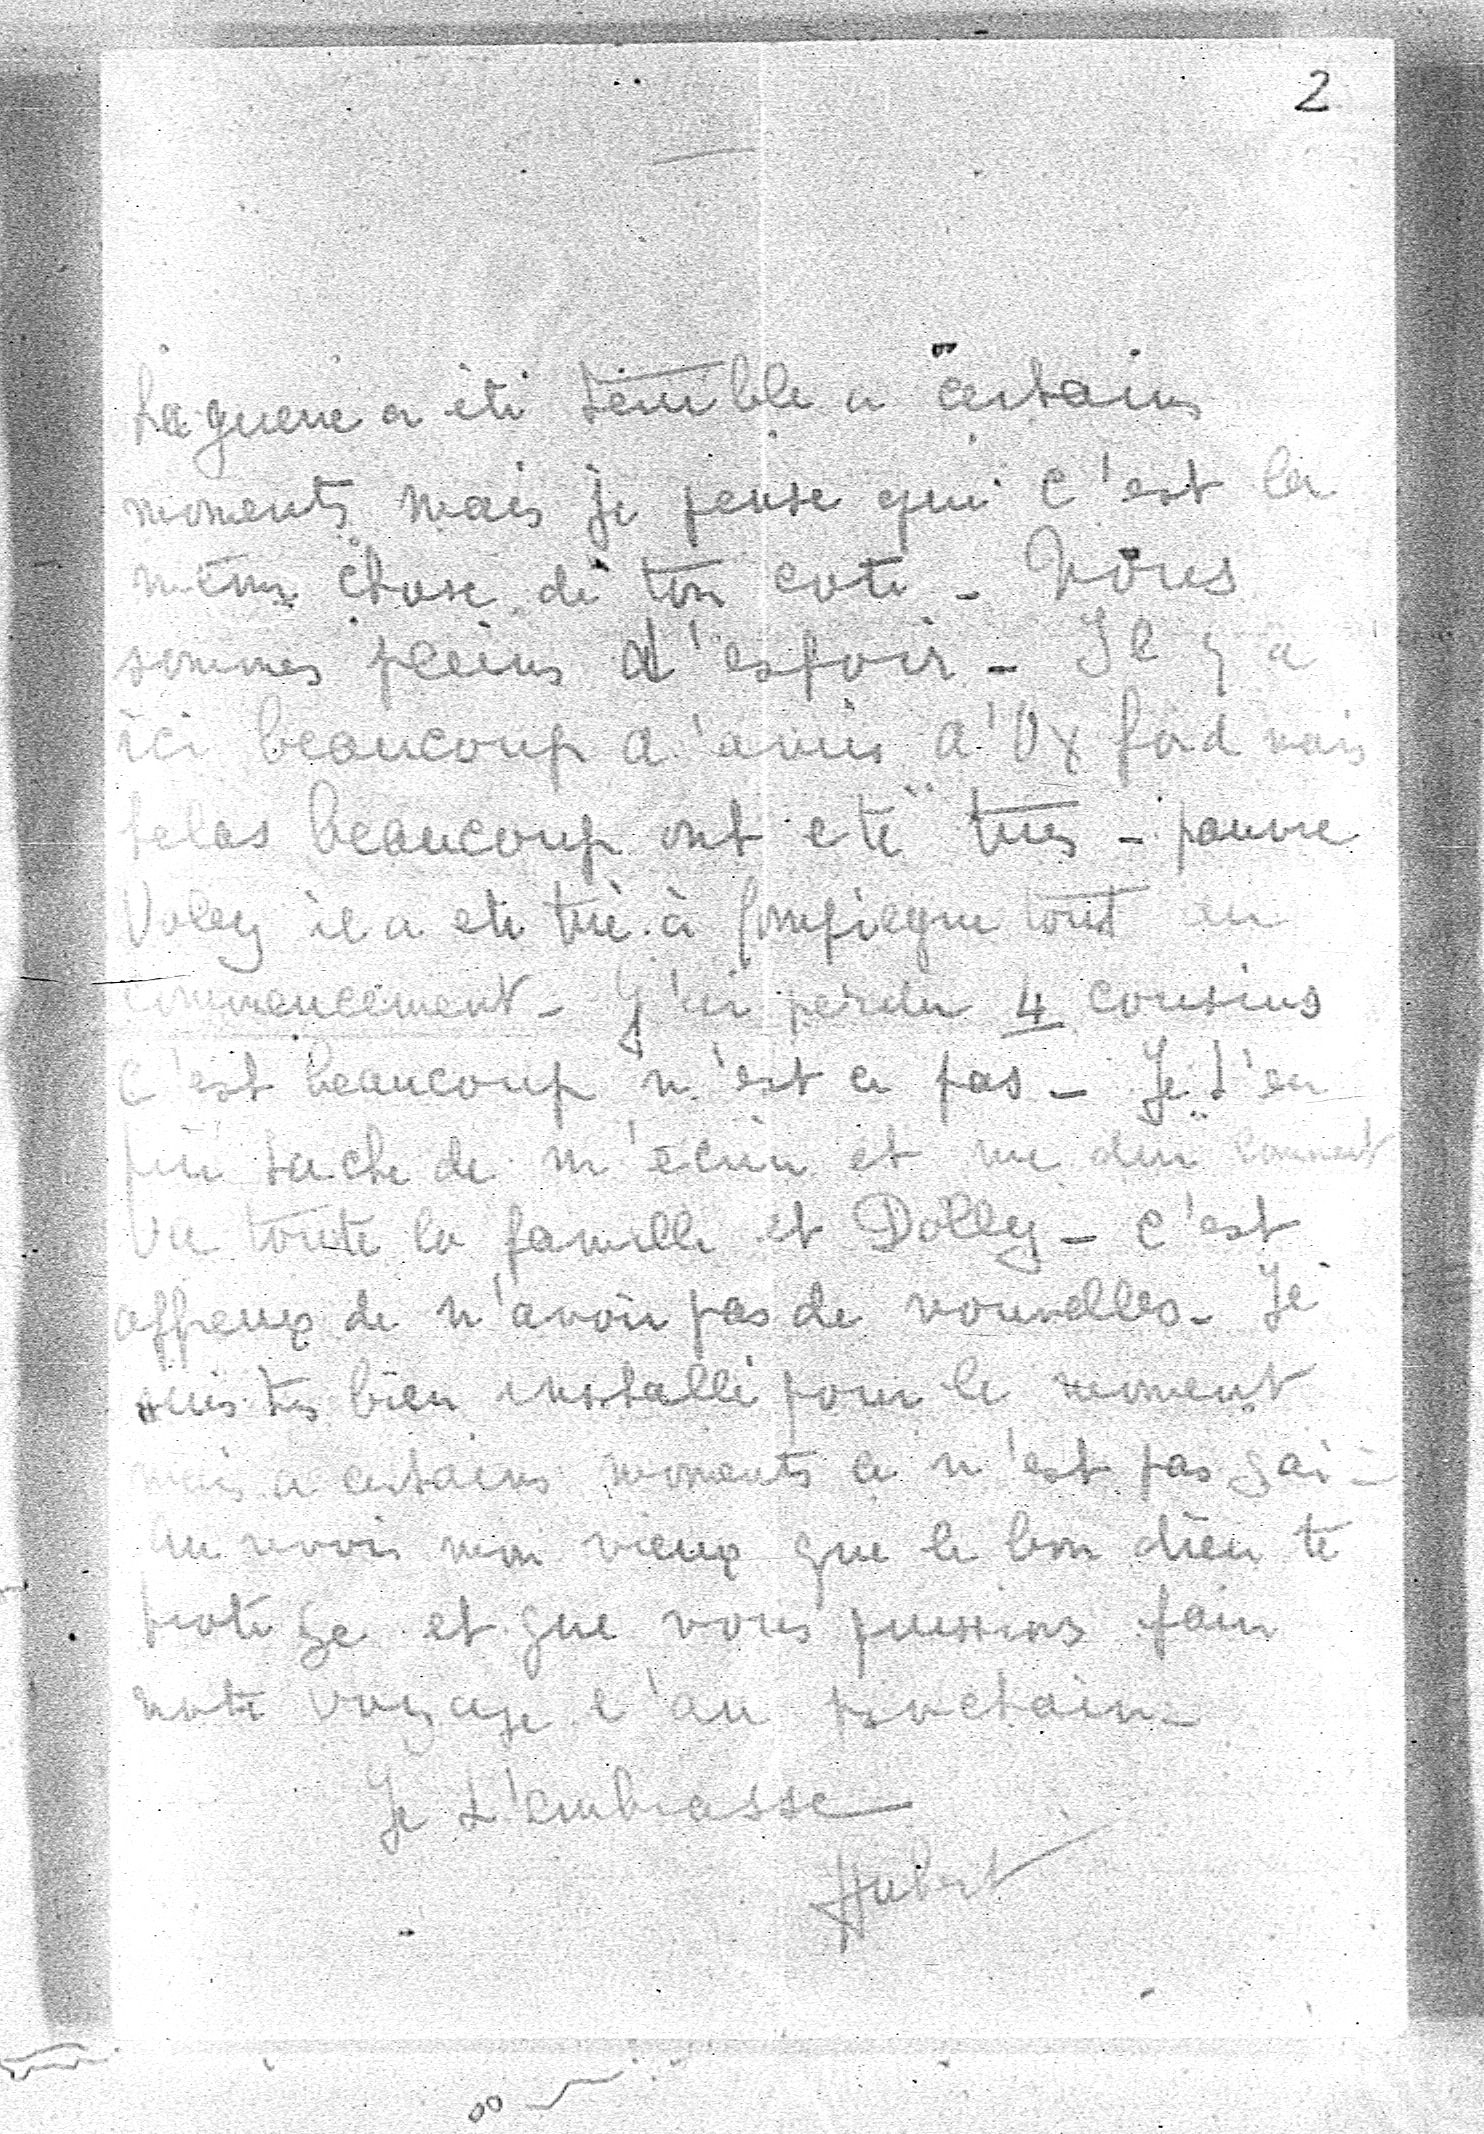 2
La guerre a été terrible a certains
moments mais je pense que c'est la
même chose de ton cote - Nous
sommes pleins d'espoir - Il y a
ici beaucoup d'amis d'Oxford mais
helas beaucoup ont eté tués - pauvre
il a ete tué à Compiegne tout au
commencement - J'ai perdu 4 cousins
c'est beaucoup n'est ce pas - Je t'en
prie tache de m'écrire et me dire comment
va toute la famille et Dolly - c'est
affreux de n'avoir pas de nouvelles - Je
suis tres bien installé pour le moment
mais a certains moments ce n'est pas gai -
Au revoir mon vieux que le bon dieu te
protege et que nous puissions faire
notre voyage l'an prochain -
Je t'embrasse
Hubert